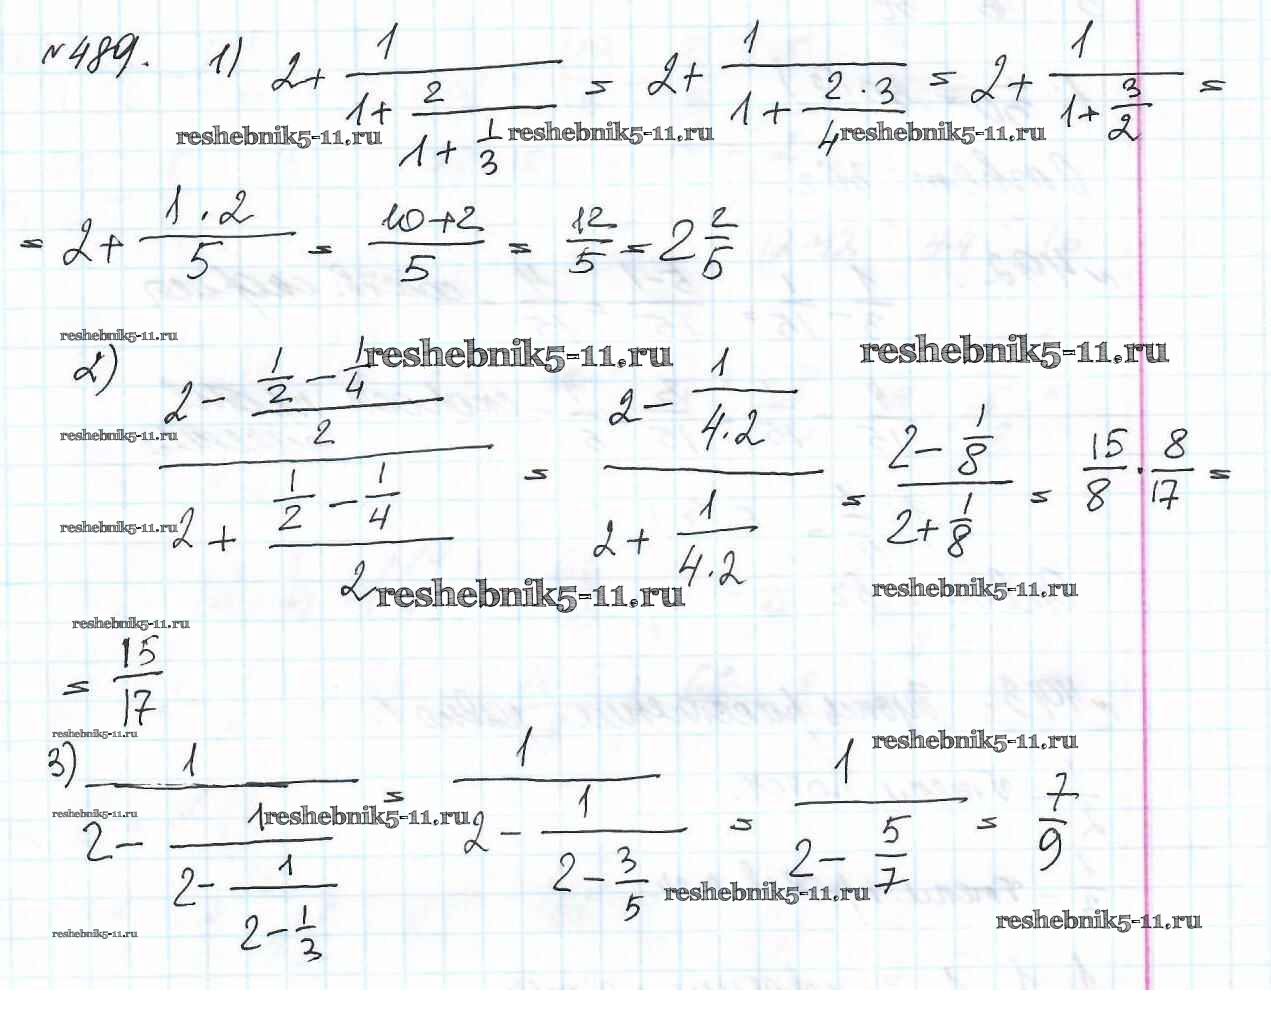 №489. 1) 2 + 1/(1 + 2/(1 + 1/3)) = 2 + 1/(1 + 2·3/4) = 2 + 1/(1 + 3/2) =
reshebnik5-11.ru reshebnik5-11.ru reshebnik5-11.ru
= 2 + 1·2/5 = 10+2/5 = 12/5 = 2 2/5
reshebnik5-11.ru
reshebnik5-11.ru reshebnik5-11.ru
2) (2 - (1/2 - 1/4)/2)/(2 + (1/2 - 1/4)/2) = (2 - 1/(4·2))/(2 + 1/(4·2)) = (2 - 1/8)/(2 + 1/8) = 15/8 · 8/17 =
reshebnik5-11.ru
reshebnik5-11.ru
reshebnik5-11.ru reshebnik5-11.ru
reshebnik5-11.ru
= 15/17
reshebnik5-11.ru reshebnik5-11.ru
3) 1/(2 - 1/(2 - 1/(2 - 1/3))) = 1/(2 - 1/(2 - 3/5)) = 1/(2 - 5/7) = 7/9
reshebnik5-11.ru reshebnik5-11.ru
reshebnik5-11.ru
reshebnik5-11.ru reshebnik5-11.ru